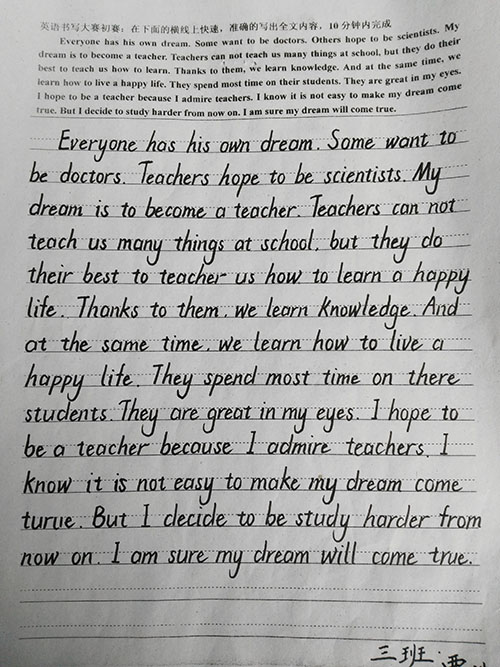 英语书写大赛初赛：在下面的横线上快速，准确的写出全文内容，10 分钟内完成
Everyone has his own dream. Some want to be doctors. Others hope to be scientists. My
dream is to become a teacher. Teachers can not teach us many things at school, but they do their
best to teach us how to learn. Thanks to them, we learn knowledge. And at the same time, we
learn how to live a happy life. They spend most time on their students. They are great in my eyes.
I hope to be a teacher because I admire teachers. I know it is not easy to make my dream come
true. But I decide to study harder from now on. I am sure my dream will come true.
Everyone has his own dream. Some want to
be doctors. Teachers hope to be scientists. My
dream is to become a teacher. Teachers can not
teach us many things at school, but they do
their best to teacher us how to learn a happy
life. Thanks to them, we learn Knowledge. And
at the same time, we learn how to live a
happy life. They spend most time on there
students. They are great in my eyes. I hope to
be a teacher because I admire teachers. I
know it is not easy to make my dream come
turue. But I decide to be study harder from
now on. I am sure my dream will come true.
三班